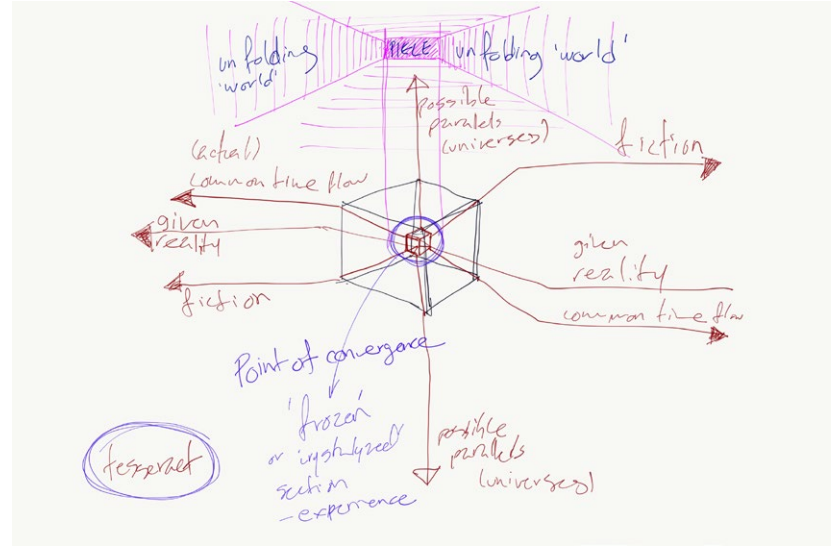 unfolding
'world'
PIECE
unfolding 'world'
possible
paralels
(universes)
fiction
(actual)
common time flow
given
reality
fiction
given
reality
common time flow
Point of convergence
'frozen'
or crystalyzed
section
-experience
possible
paralels
(universes)
tesseract